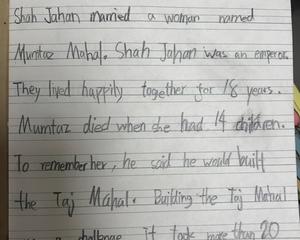 Shah Jahan married a woman named
Mumtaz Mahal. Shah Jahan was an emperor.
They lived happily together for 18 years.
Mumtaz died when she had 14 children.
To remember her, he said he would built
the Taj Mahal. Building the Taj Mahal
challenge. It took more than 20